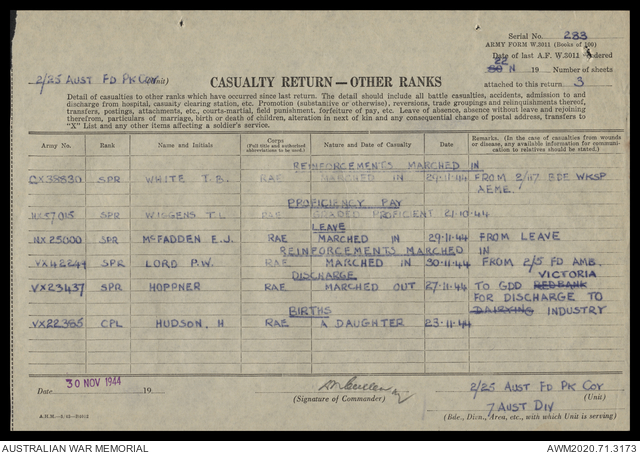 Serial No. 283
ARMY FORM W.3011 (Books of 100)
Date of last A.F. W.3011 rendered
22 N 19 Number of sheets
attached to this return 3
2/25 AUST FD PK COY (Unit)
CASUALTY RETURN—OTHER RANKS
Detail of casualties to other ranks which have occurred since last return. The detail should include all battle casualties, accidents, admission to and
discharge from hospital, casualty clearing station, etc. Promotion (substantive or otherwise), reversions, trade groupings and relinquishments thereof,
transfers, postings, attachments, etc., courts-martial, field punishment, forfeiture of pay, etc. Leave of absence, absence without leave and rejoining
therefrom, particulars of marriage, birth or death of children, alteration in next of kin and any consequential change of postal address, transfers to
"X" List and any other items affecting a soldier's service.
Army No. Rank Name and Initials Corps (Full title and authorized abbreviations to be used.) Nature and Date of Casualty Date Remarks. (In the case of casualties from wounds or disease, any available information for communication to relatives should be stated.)
REINFORCEMENTS MARCHED IN
SPR WHITE T.B. RAE MARCHED IN 29-11-44 FROM 2/117 BDE WKSP
AEME.
PROFICIENCY PAY
SPR WIGGENS T.L. RAE GRADED PROFICIENT 21-10-44
LEAVE
NX25000 SPR McFADDEN E.J. RAE MARCHED IN 29-11-44 FROM LEAVE
REINFORCEMENTS MARCHED IN
VX42244 SPR LORD P.W. RAE MARCHED IN 30-11-44 FROM 2/5 FD AMB.
DISCHARGE VICTORIA
VX23437 SPR HOPPNER RAE MARCHED OUT 27-11-44 TO GDD REDBANK
FOR DISCHARGE TO
BIRTHS DAIRYING INDUSTRY
VX22385 CPL HUDSON, H RAE A DAUGHTER 23-11-44
Date 30 NOV 1944 19
(Signature of Commander)
2/25 AUST FD PK COY
(Unit)
7 AUST DIV
(Bde., Divn., Area, etc., with which Unit is serving)
AUSTRALIAN WAR MEMORIAL
AWM2020.71.3173